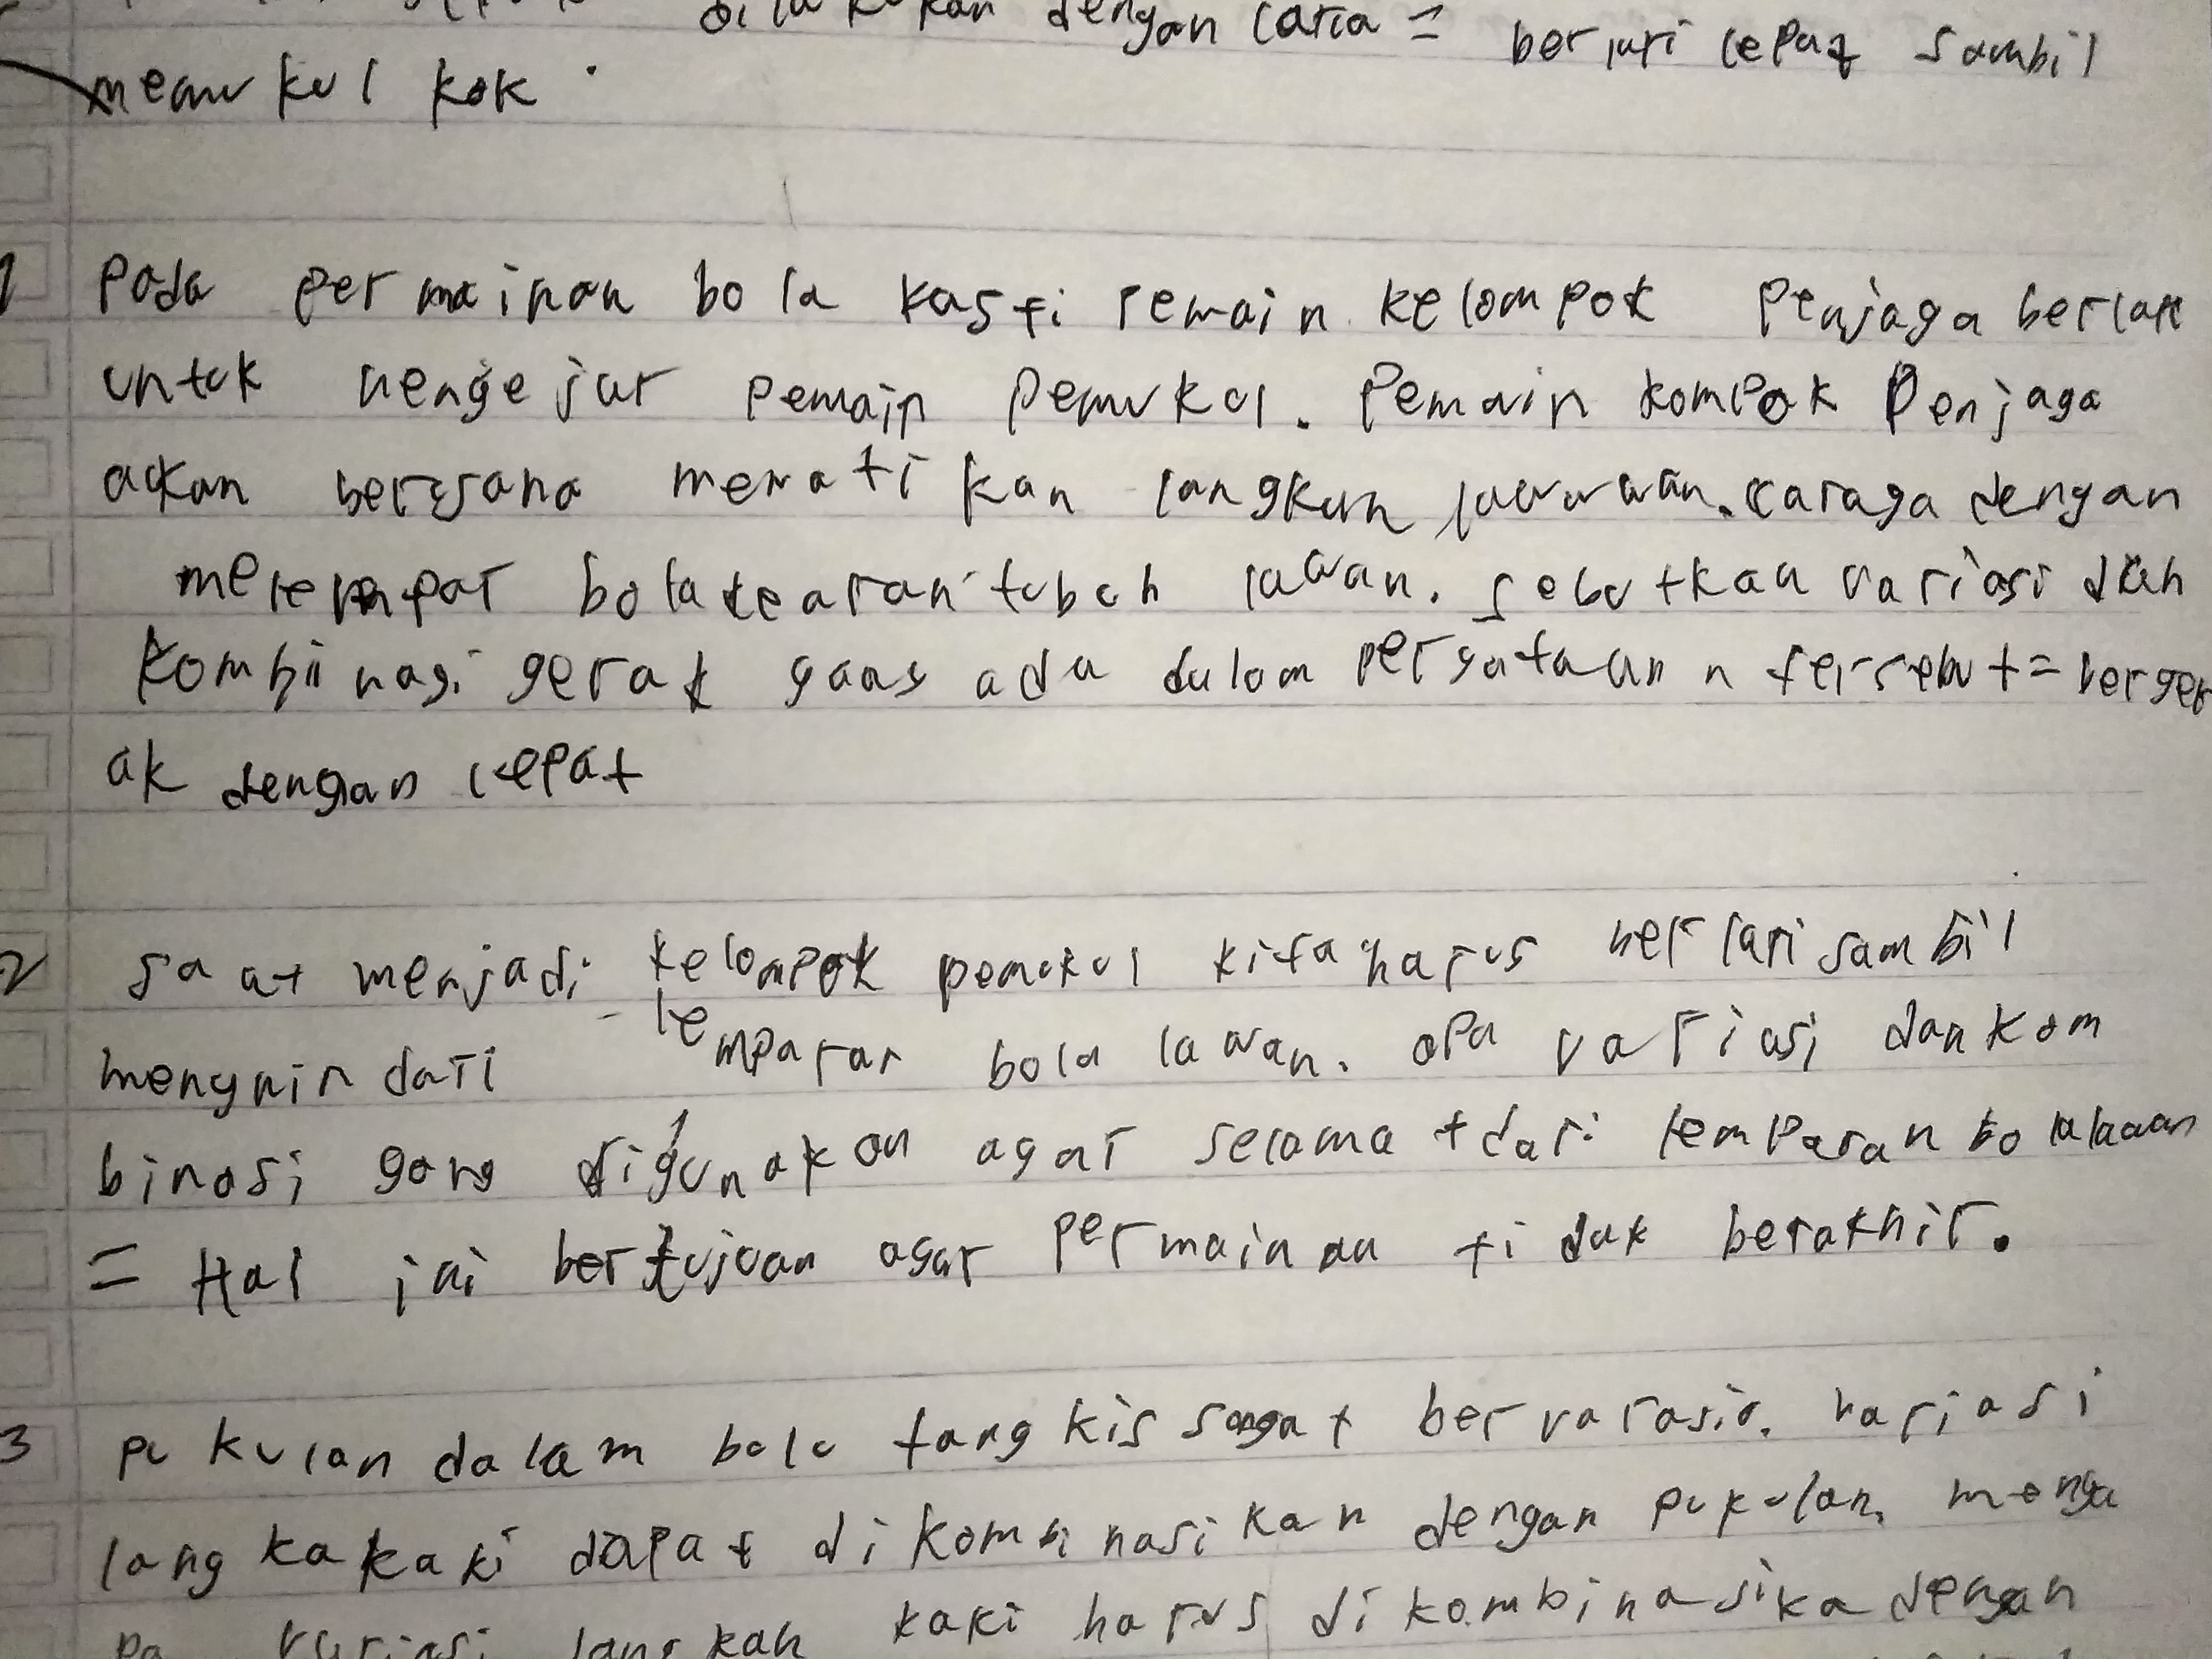 dilakukan dengan cara = berlari cepat sambil
memukul kok.
1 Pada permainan bola kasti pemain kelompok penjaga berlari
untuk mengejar pemain pemukul. Pemain kompok Penjaga
akan berusaha mematikan langkah lawan. caraga dengan
melempar bola kearah tubuh lawan. Sebutkan variasi dan
kombinasi gerak yang ada dalam pergataan tersebut = berger
ak dengan cepat
2 saat menjadi kelompok pemukul kita harus berlari sambil
menghindari lemparan bola lawan. apa variasi dan kom
binasi yang digunakan agar selamat dari lemparan bola lawan
= Hal ini bertujuan agar permainan tidak berakhir.
3 pukulan dalam bulu tangkis sangat bervarasia. variasi
langka kaki dapat dikombinasikan dengan pukulan. menga
pa variasi langkah kaki harus dikombinasika dengan